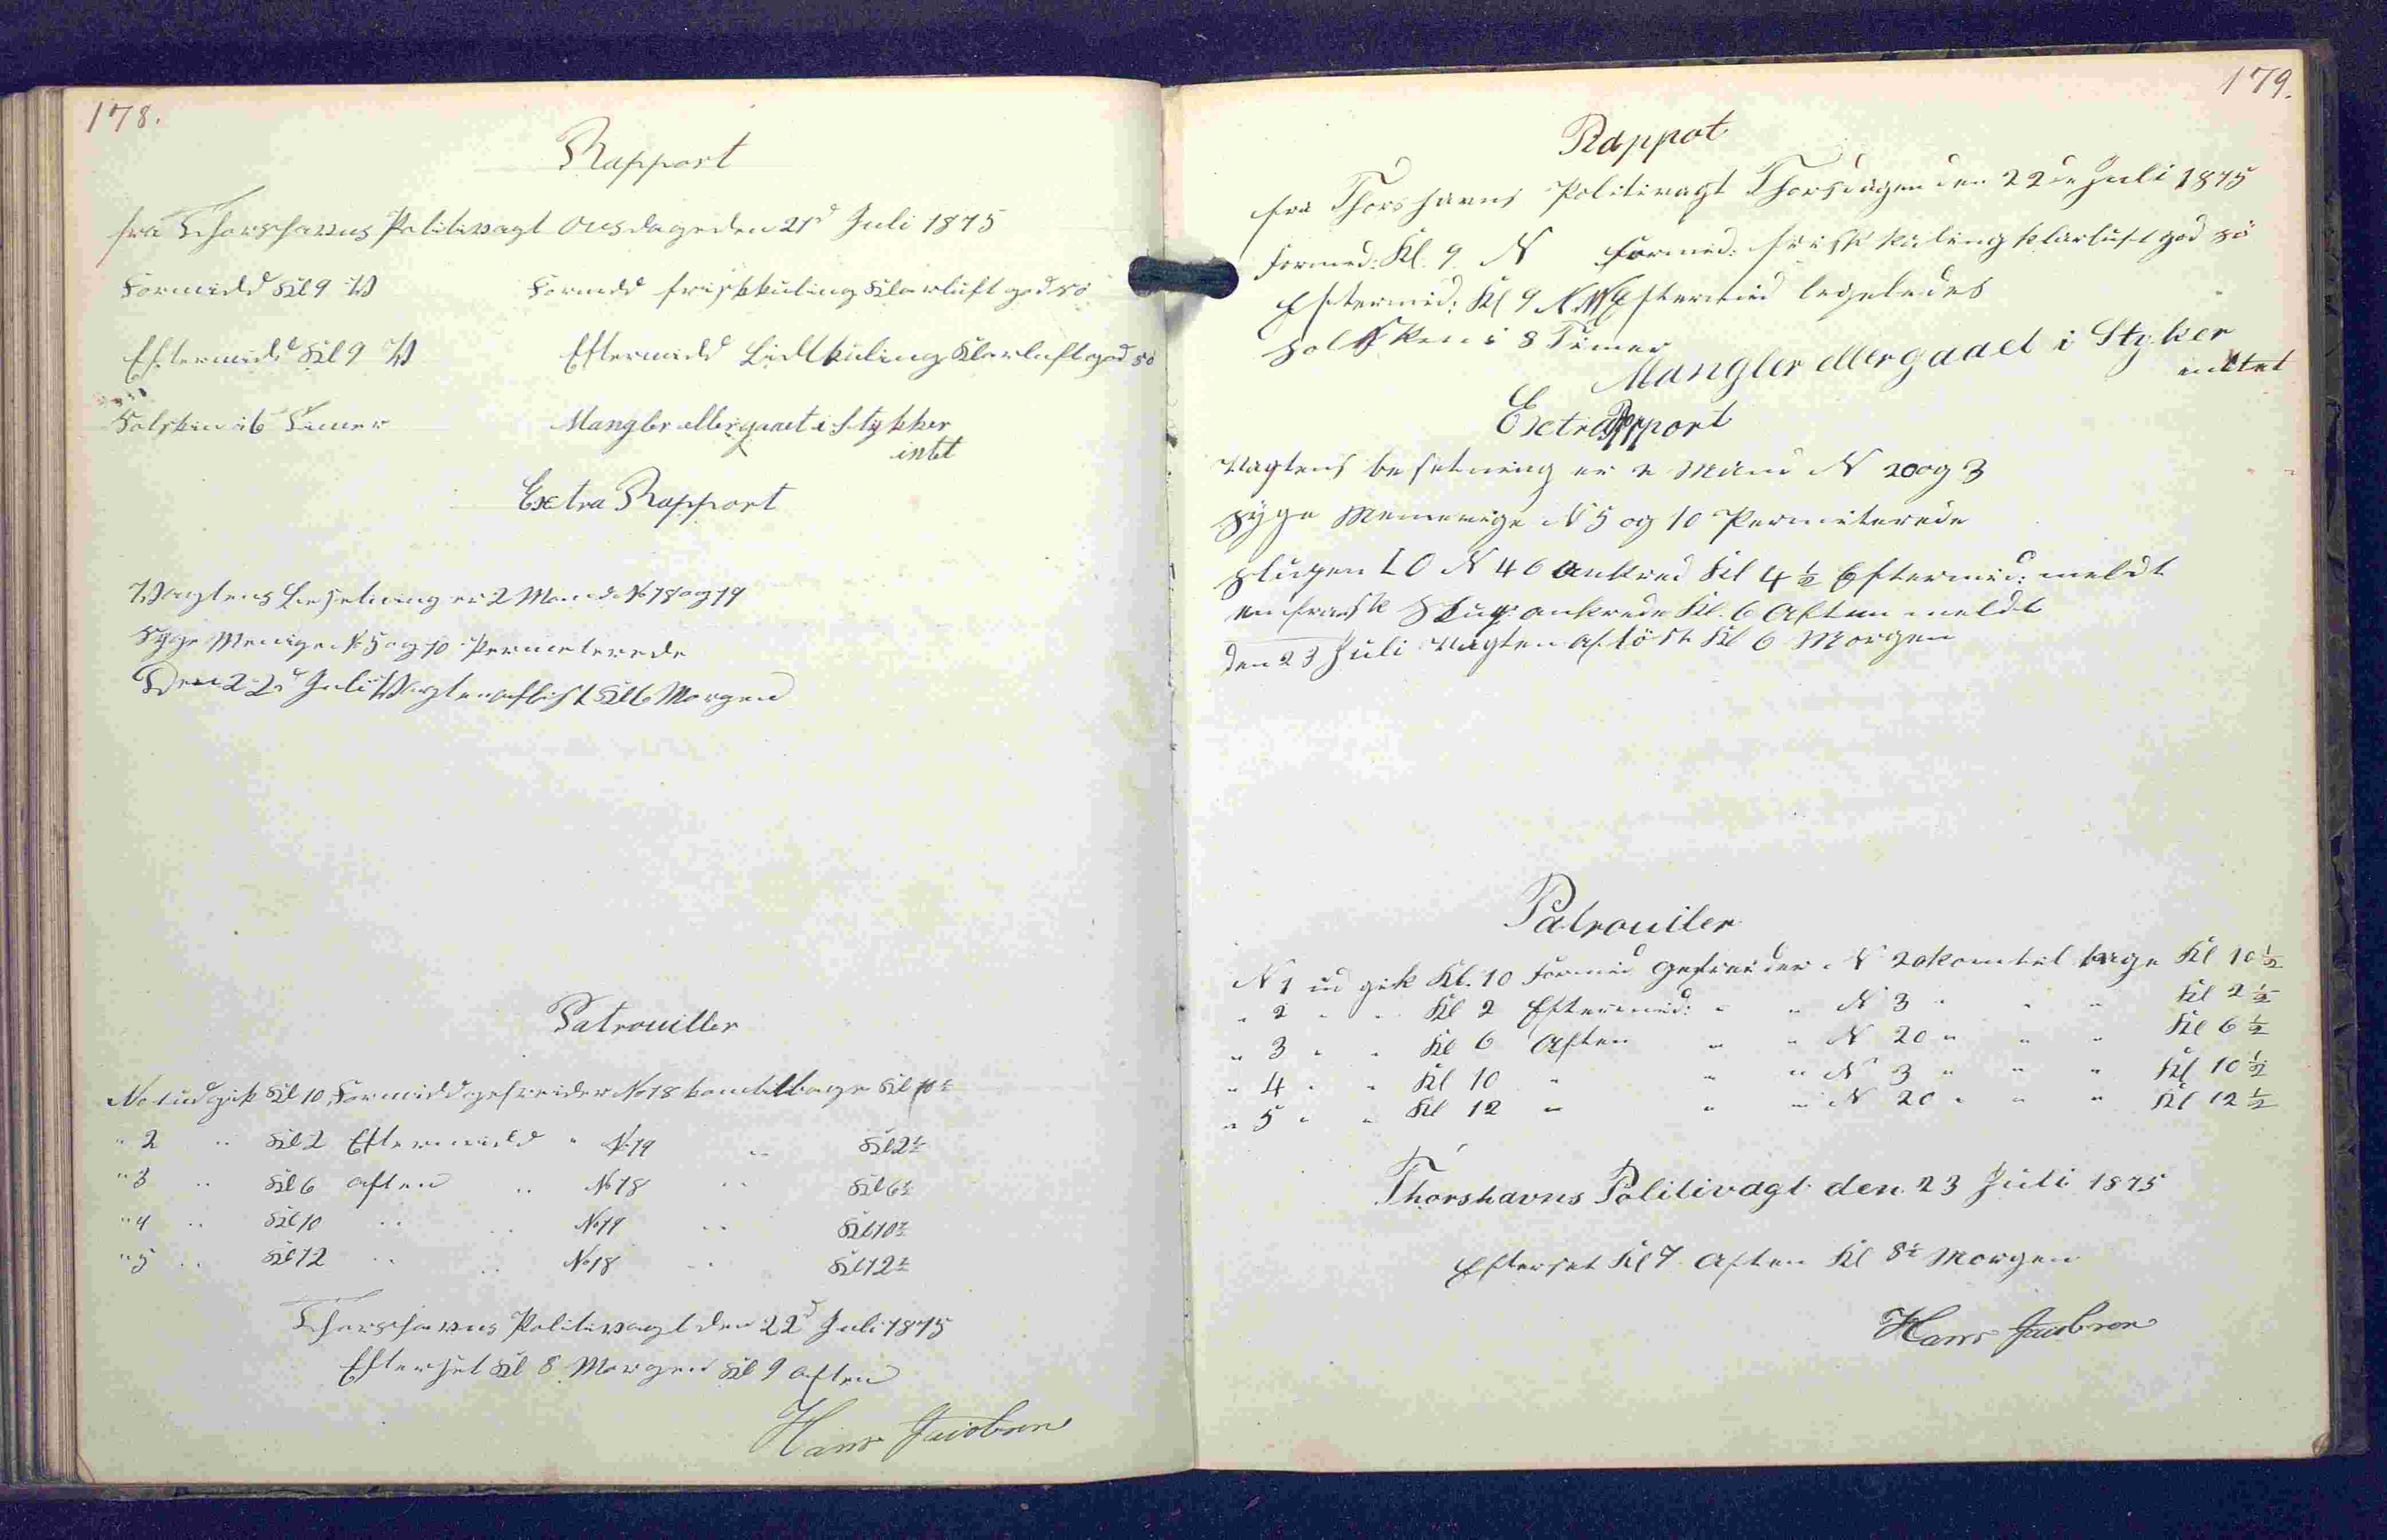 178.
Rapport
fra Thorshavns Politivagt Onsdagen den 21d Juli 1875
Formidd Kl 9 W Formdd friskkuling Klarluft god sö
Eftermidd Kl 9 W Eftermidd Lidtkuling Klarluft god sö
Solskin i 6 Timer Mangler eller gaaet i stykker
intet
Extra Rapport
Vagtens Besetning er 2 Mand No 18 og 19
Syge Menige No 5 og 10 Permeterede
Den 22d Juli Vagten aflöst Kl 6 Morgen
Patrouiller
No 1 udgik Kl 10 Formidd gefreider No 18 kom tilbage Kl 10½
" 2 " Kl 2 Eftermidd " No 19 " Kl 2½
" 3 " Kl 6 aften " No 18 " Kl 6½
" 4 " Kl 10 " " No 19 " Kl 10½
" 5 " Kl 12 " " No 18 " Kl 12½
Thorshavns Politivagt den 22d Juli 1875
Efterset Kl 8 Morgen Kl 9 aften
Hans Jacobsen
179.
Rappot
fra Thorshavns Politivagt Thorsdagen den 22de Juli 1875
Formid: Kl. 9 N Formid: frisk kuling klarluft god sö
Eftermid: Kl 9 N.W Eftermid legeledes
Solsken i 8 Timer
Mangler eller gaaet i Styker
intet
Extra Rapport
Vagtens besetning er 2 Mand N 20 og 3
Syge Menenige N 5 og 10 Permiterede
Slupen LO N 46 ankred Kl 4½ Eftermid: meldt
en fransk Slup ankrede Kl. 6 Aften meldt
den 23 Juli Vagten aflöst Kl 6 Morgen
Patrouiler
N 1 ud gik Kl. 10 Formid gefreider N 20 kom til bage Kl 10½
" 2 " " Kl 2 Eftermid: " " N 3 " " " Kl 2½
" 3 " " Kl 6 Aften " " N 20 " " " Kl 6½
" 4 " " Kl 10 " " " N 3 " " " Kl 10½
" 5 " " Kl 12 " " " N 20 " " " Kl 12½
Thorshavns Politivagt den 23 Juli 1875
Efterset Kl 7 Aften Kl 8½ Morgen
Hans Jacobsen